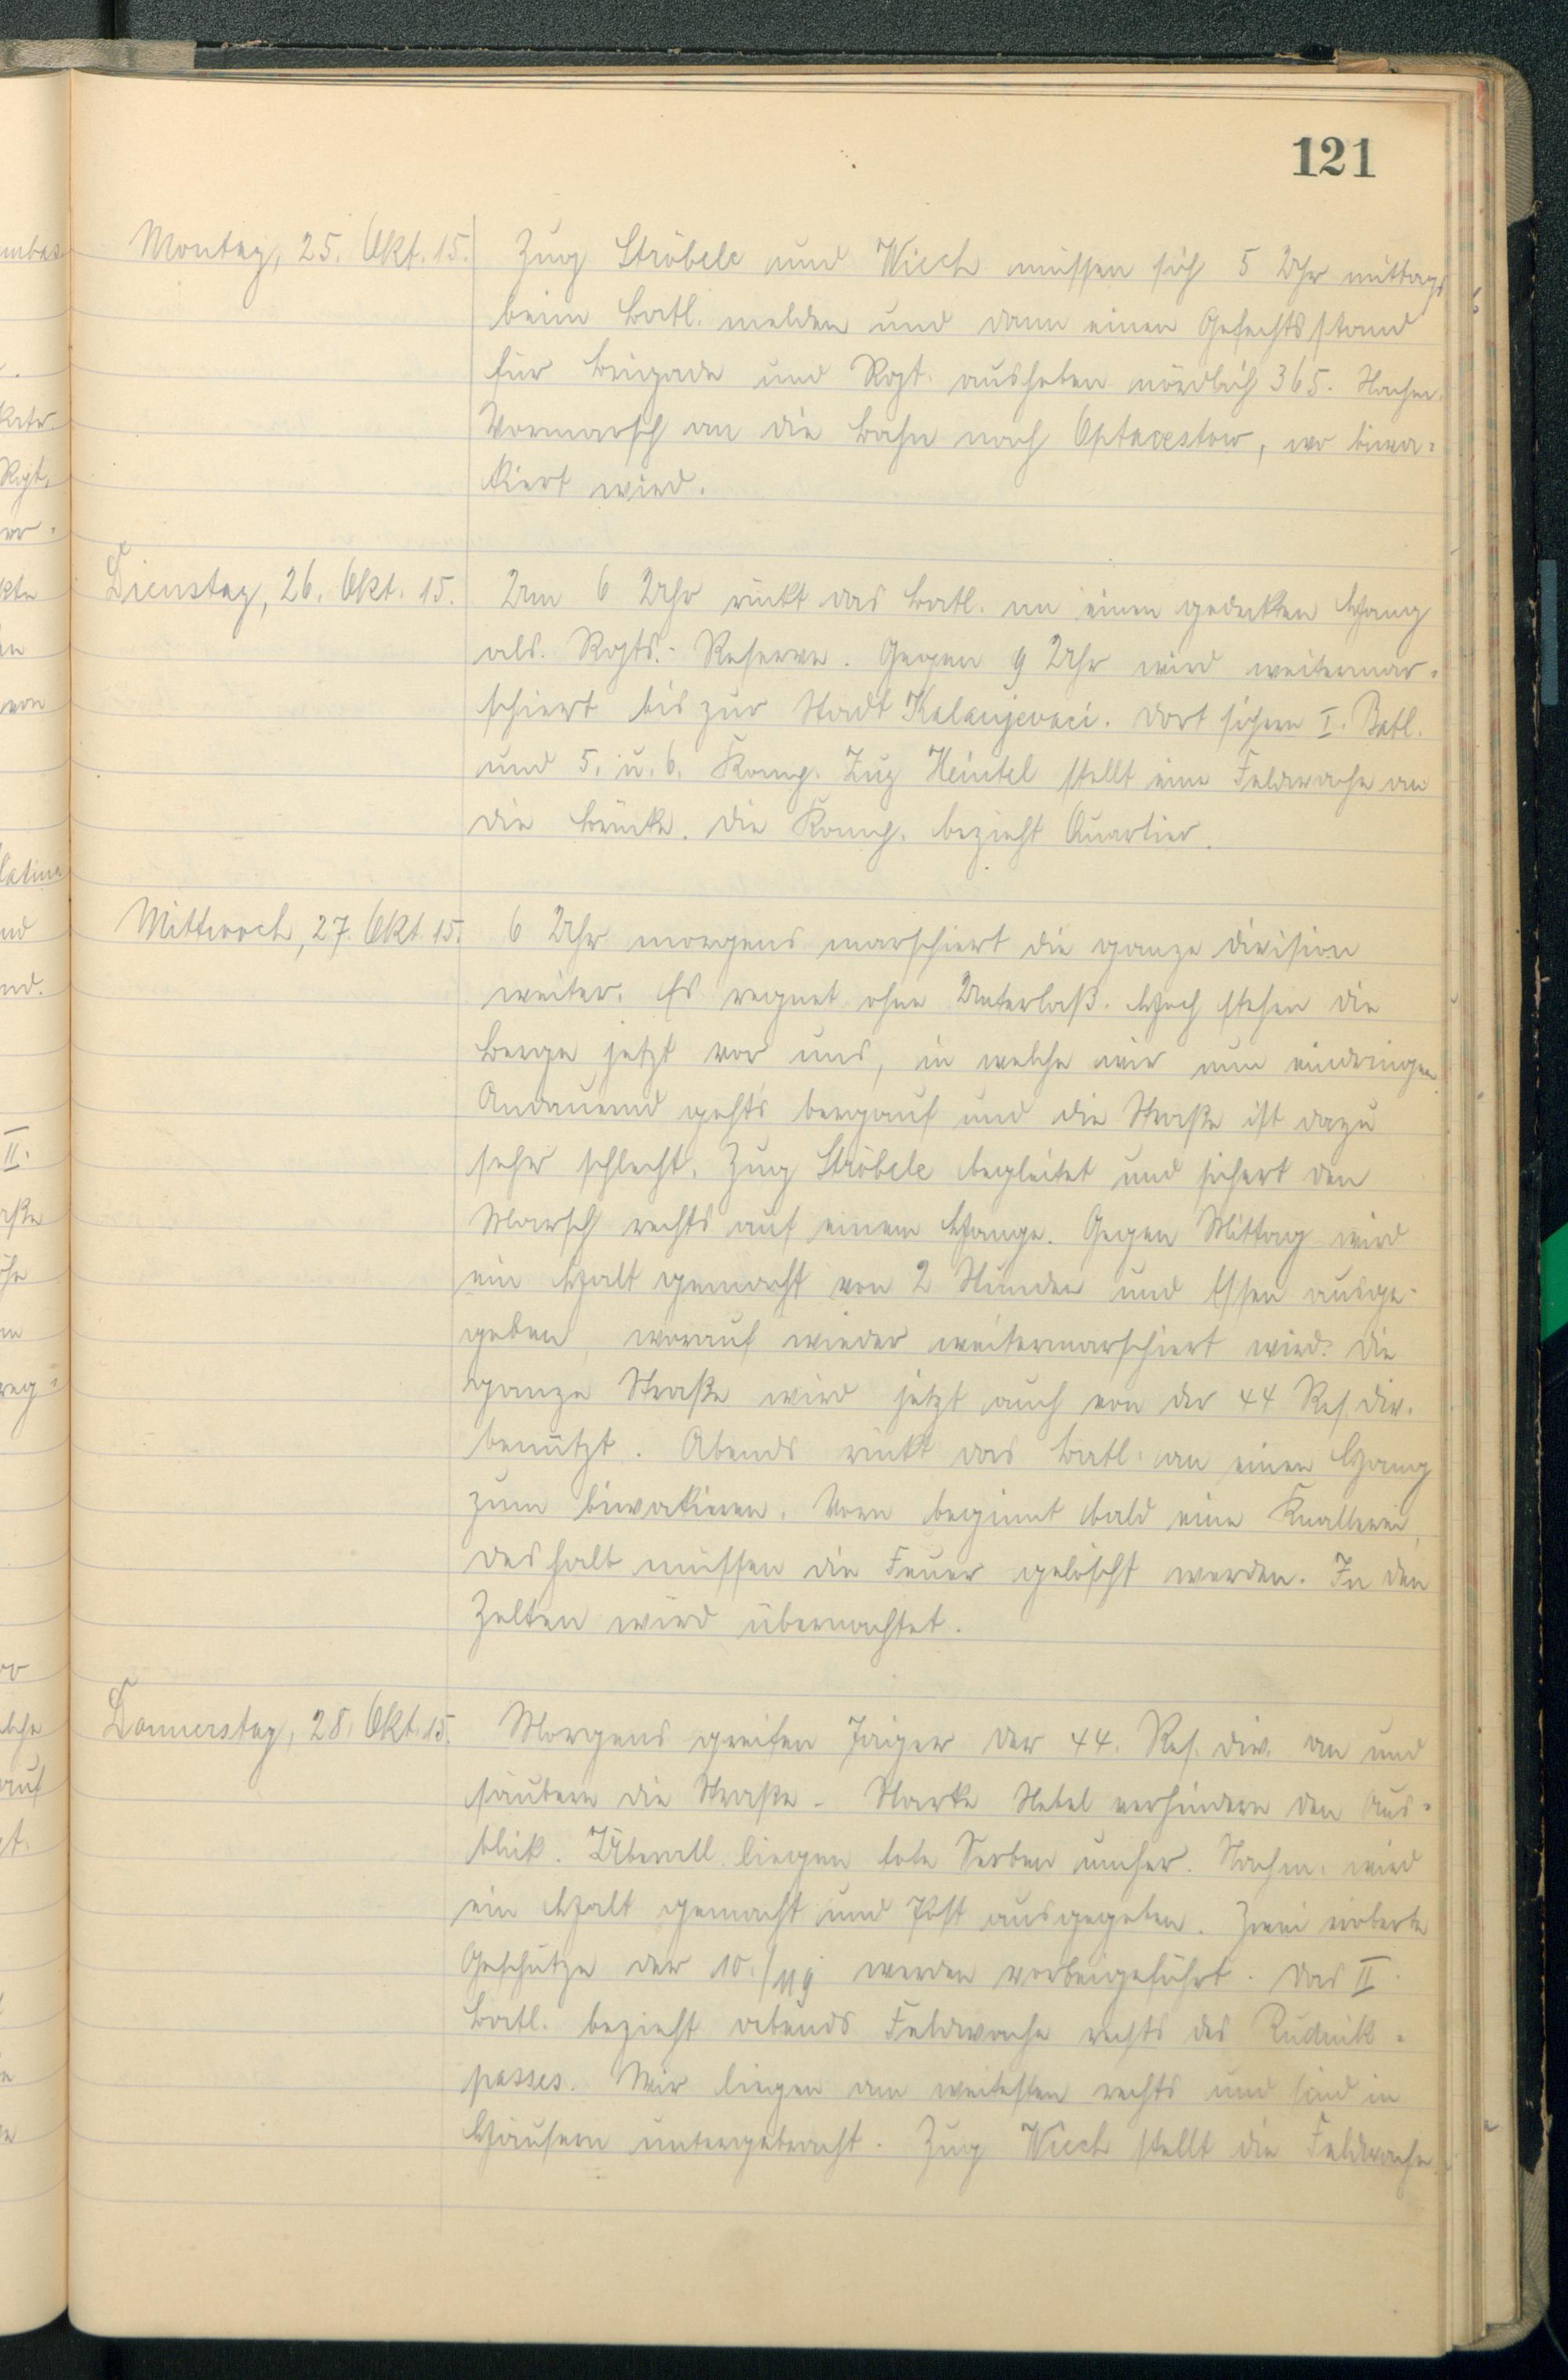 121
Montag, 25. Okt. 15. Zug Ströbele und Wiech müssen sich 5 Uhr mittags
beim Batl. melden und dann einen Gefechtsstand
für Brigade und Rgt. ausheben nördlich 365. Nachm.
Vormarsch an die Bahn nach wo biwa-
kiert wird.
Dienstag, 26. Okt. 15. Um 6 Uhr rückt das Batl. an einen gedeckten Hang
als Rgts.- Reserve. Gegen 9 Uhr wird weitermar-
schiert bis zur Stadt Kalanjevaci. Dort sichern I. Batl.
und 5. u. 6. Komp. Zug Heintel stellt eine Feldwache an
die Brücke. Die Komp. bezieht Quartier.
Mittwoch, 27. Okt. 15. 6 Uhr morgens marschiert die ganze Division
weiter. Es regnet ohne Unterlaß. Hoch stehen die
Berge jetzt vor uns, in welche wir nun eindringen.
Andauernd gehts bergauf und die Straße ist dazu
sehr schlecht. Zug Ströbele begleitet und sichert den
Marsch rechts auf einem Hange. Gegen Mittag wird
ein Halt gemacht von 2 Stunden und Essen ausge-
geben, worauf wieder weitermarschiert wird. Die
ganze Straße wird jetzt auch von der 44 Res. Div.
benützt. Abends rückt das Batl. an einen Hang
zum biwakieren. Vorn beginnt bald eine Knallerei,
deshalb müssen die Feuer gelöscht werden. In den
Zelten wird übernachtet.
Donnerstag, 28. Okt. 15. Morgens greifen Jäger der 44. Res. Div. an und
säubern die Straße. Starke Nebel verhindern den Aus-
blick. Überall liegen tote Serben umher. Nachm. wird
ein Halt gemacht und Post ausgegeben. Zwei eroberte
Geschütze der 10./119 werden vorbeigeführt. Das II.
Batl. bezieht abends Feldwache rechts des Rudnik-
passes. Wir liegen am weitesten rechts und sind in
Häusern untergebracht. Zug Wiech stellt die Feldwache.